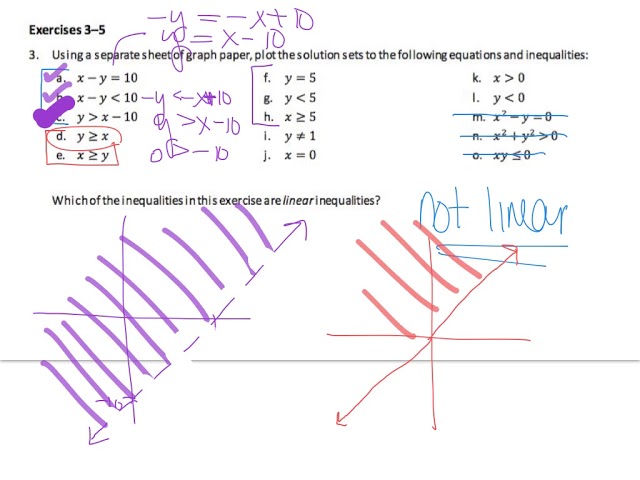 -y = -x + 10
Exercises 3–5
y = x - 10
3. Using a separate sheet of graph paper, plot the solution sets to the following equations and inequalities:
a. x − y = 10
f. y = 5
k. x > 0
x − y < 10
-y < -x + 10
g. y < 5
l. y < 0
c. y > x − 10
y > x - 10
h. x ≥ 5
m. x² − y = 0
d. y ≥ x
i. y ≠ 1
n. x² + y² > 0
e. x ≥ y
0 > -10
j. x = 0
o. xy ≤ 0
Which of the inequalities in this exercise are linear inequalities?
not linear
-10